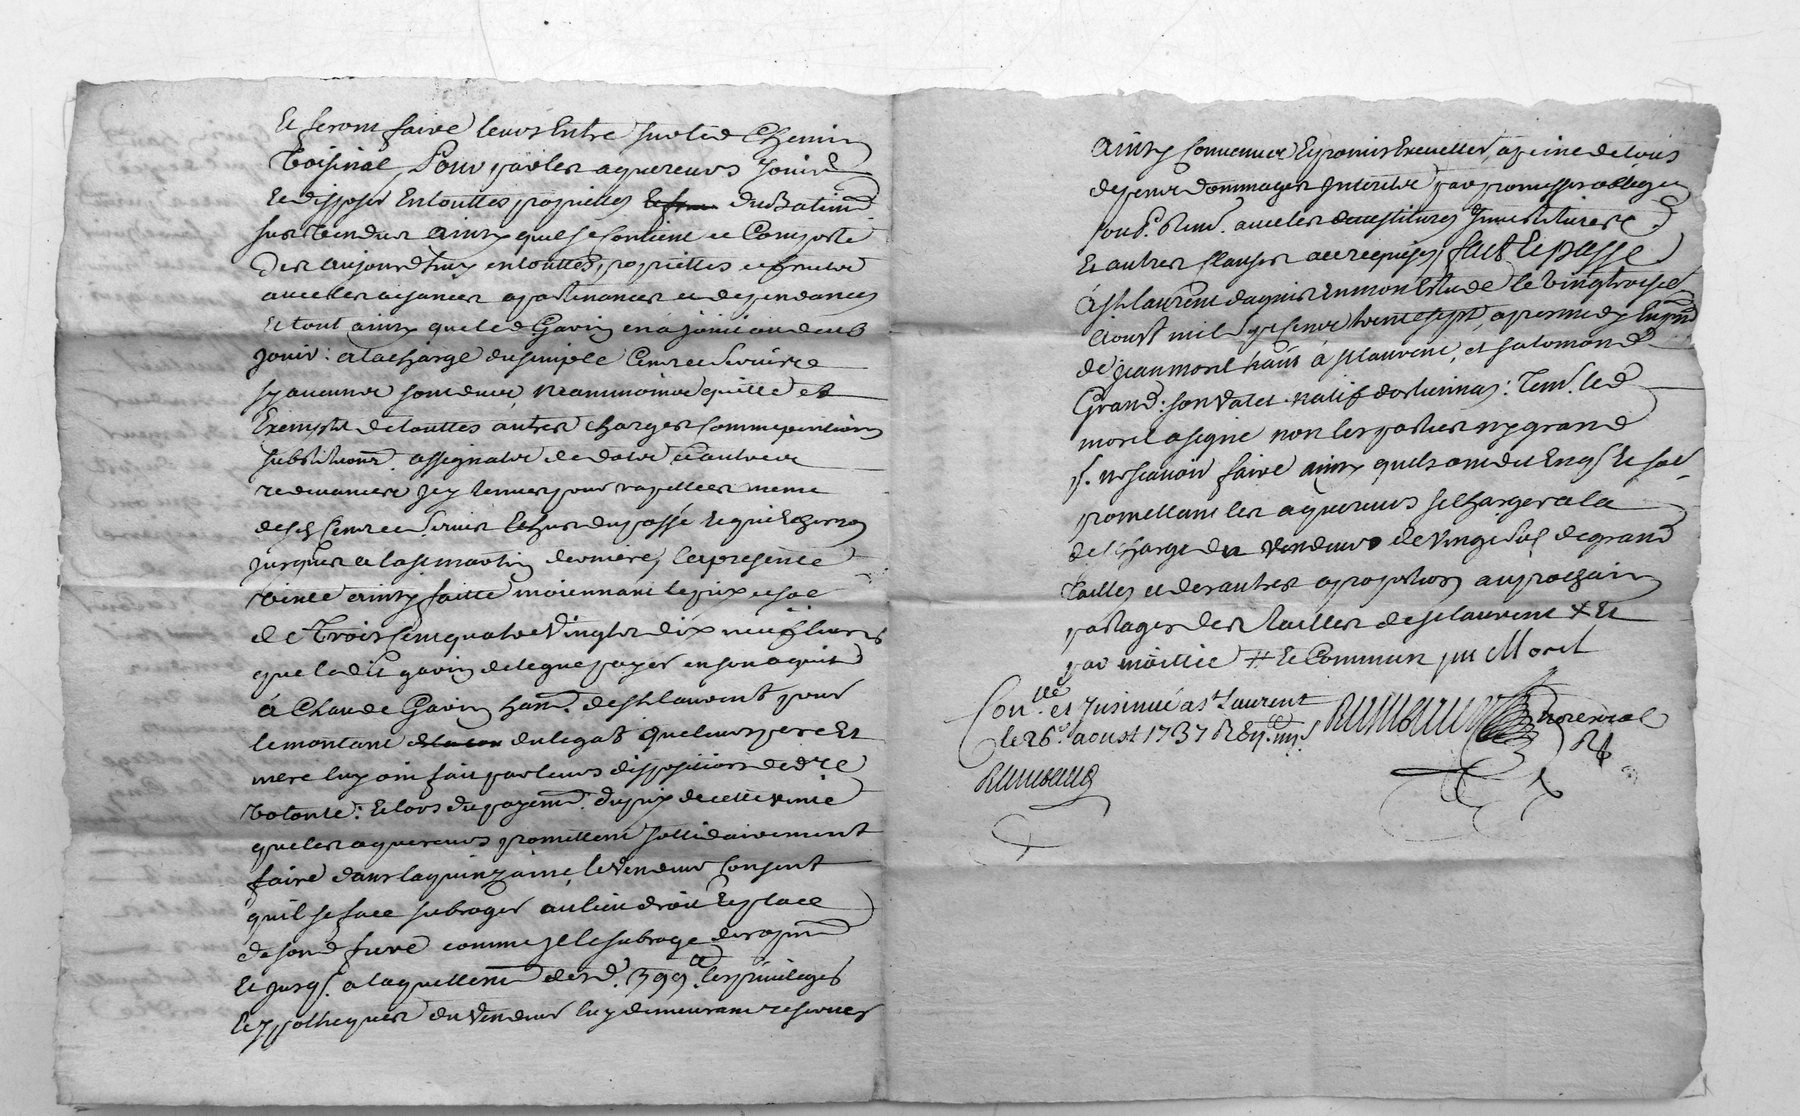 Et feront faire leurs Entre sur led Chemin
Voisinal, Pour par les aquereurs Jouir
Et disposer Entouttes proprietes du Batim.
sus Vendus ainsy quil se Contient et Comporte
Des aujourdhuy entouttes proprietes et fruits
avec les aisances apartenances et dependances
Et tout ainsy que led Gavin en a joui ou deub
Jouir: a la charge du simple Cens et Servis
sy aucuns sont deus, Neammoins quitte et
Exempte de touttes autres charges comme pentions
substitutions assignatos et dotes et autres
redevances
des Cens et Servis Echus du passé Et qui Echerron
jusques a la st martin derniere, la presente
Vente ainsy faitte moiennant le prix et so
de Trois Cens quatre Vingts dix neuf livres
que ledit gavin delegue payer en son aquit
à Claude Gavin hant. de St laurent pour
le montant du legat que leurs pere Et
mere luy ont fait par leurs dispositions de d.re
Volonté: Et lors du payem. du prix de cette vente
que les aquereurs promettent sollidairement
faire dans la quinzaine, le Vendeur Consent
quil se face subroger au lieu droit Et place
de son d frere comme Jl le subroge des apnt
Et jusq. a laquelle de lad. 399 tt les privileges
Et ypotheques du Vendeur luy demeurant reserves
ainsy Convenus Et promis Executter, a peine de tous
depens dommages Interets par promesses obliga
soub. Ren. avec les devestitures Jnvestitures
Et autres Clauses a ce requises fait Et passé
à St laurent dagnis En mon Estude le vingt troise
Aoust mil sept Cens trente sept, apres midy En pnce
de jean morel hant à St laurent, et salomon
Grand: son valet natif dartiennas: Tem. led
morel a signé non les parties ny grand
p. ne scavoir faire ainsy quils ont dit Enq. Et so
promettant les aquereurs se charger a la
decharge du Vendeur de Vingt sols de grand
tailles et des autres a proportion au prochain
partages des tailles de St laurent + Et
par moittié # Et Commun jn Morel
Con.llé et Jnsinué a St Laurent
le 26e. aoust 1737 R